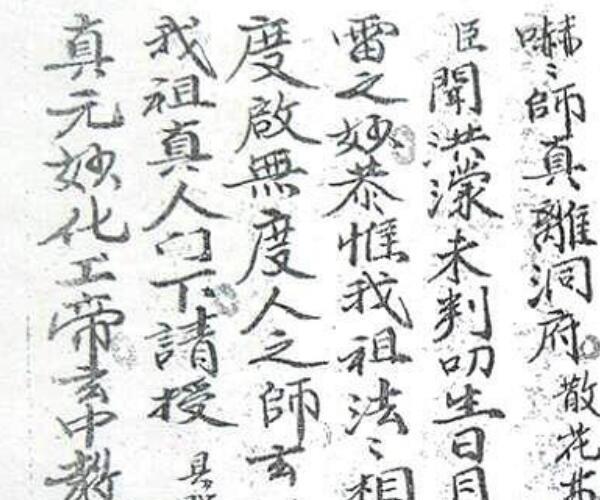 嚇〻師真離洞府散花林
臣聞洪濛未判叨生日月
雷之妙恭惟我祖法〻相
度啟無度人之師玄
我祖真人門下請授具職
真元妙化工帝玄中教